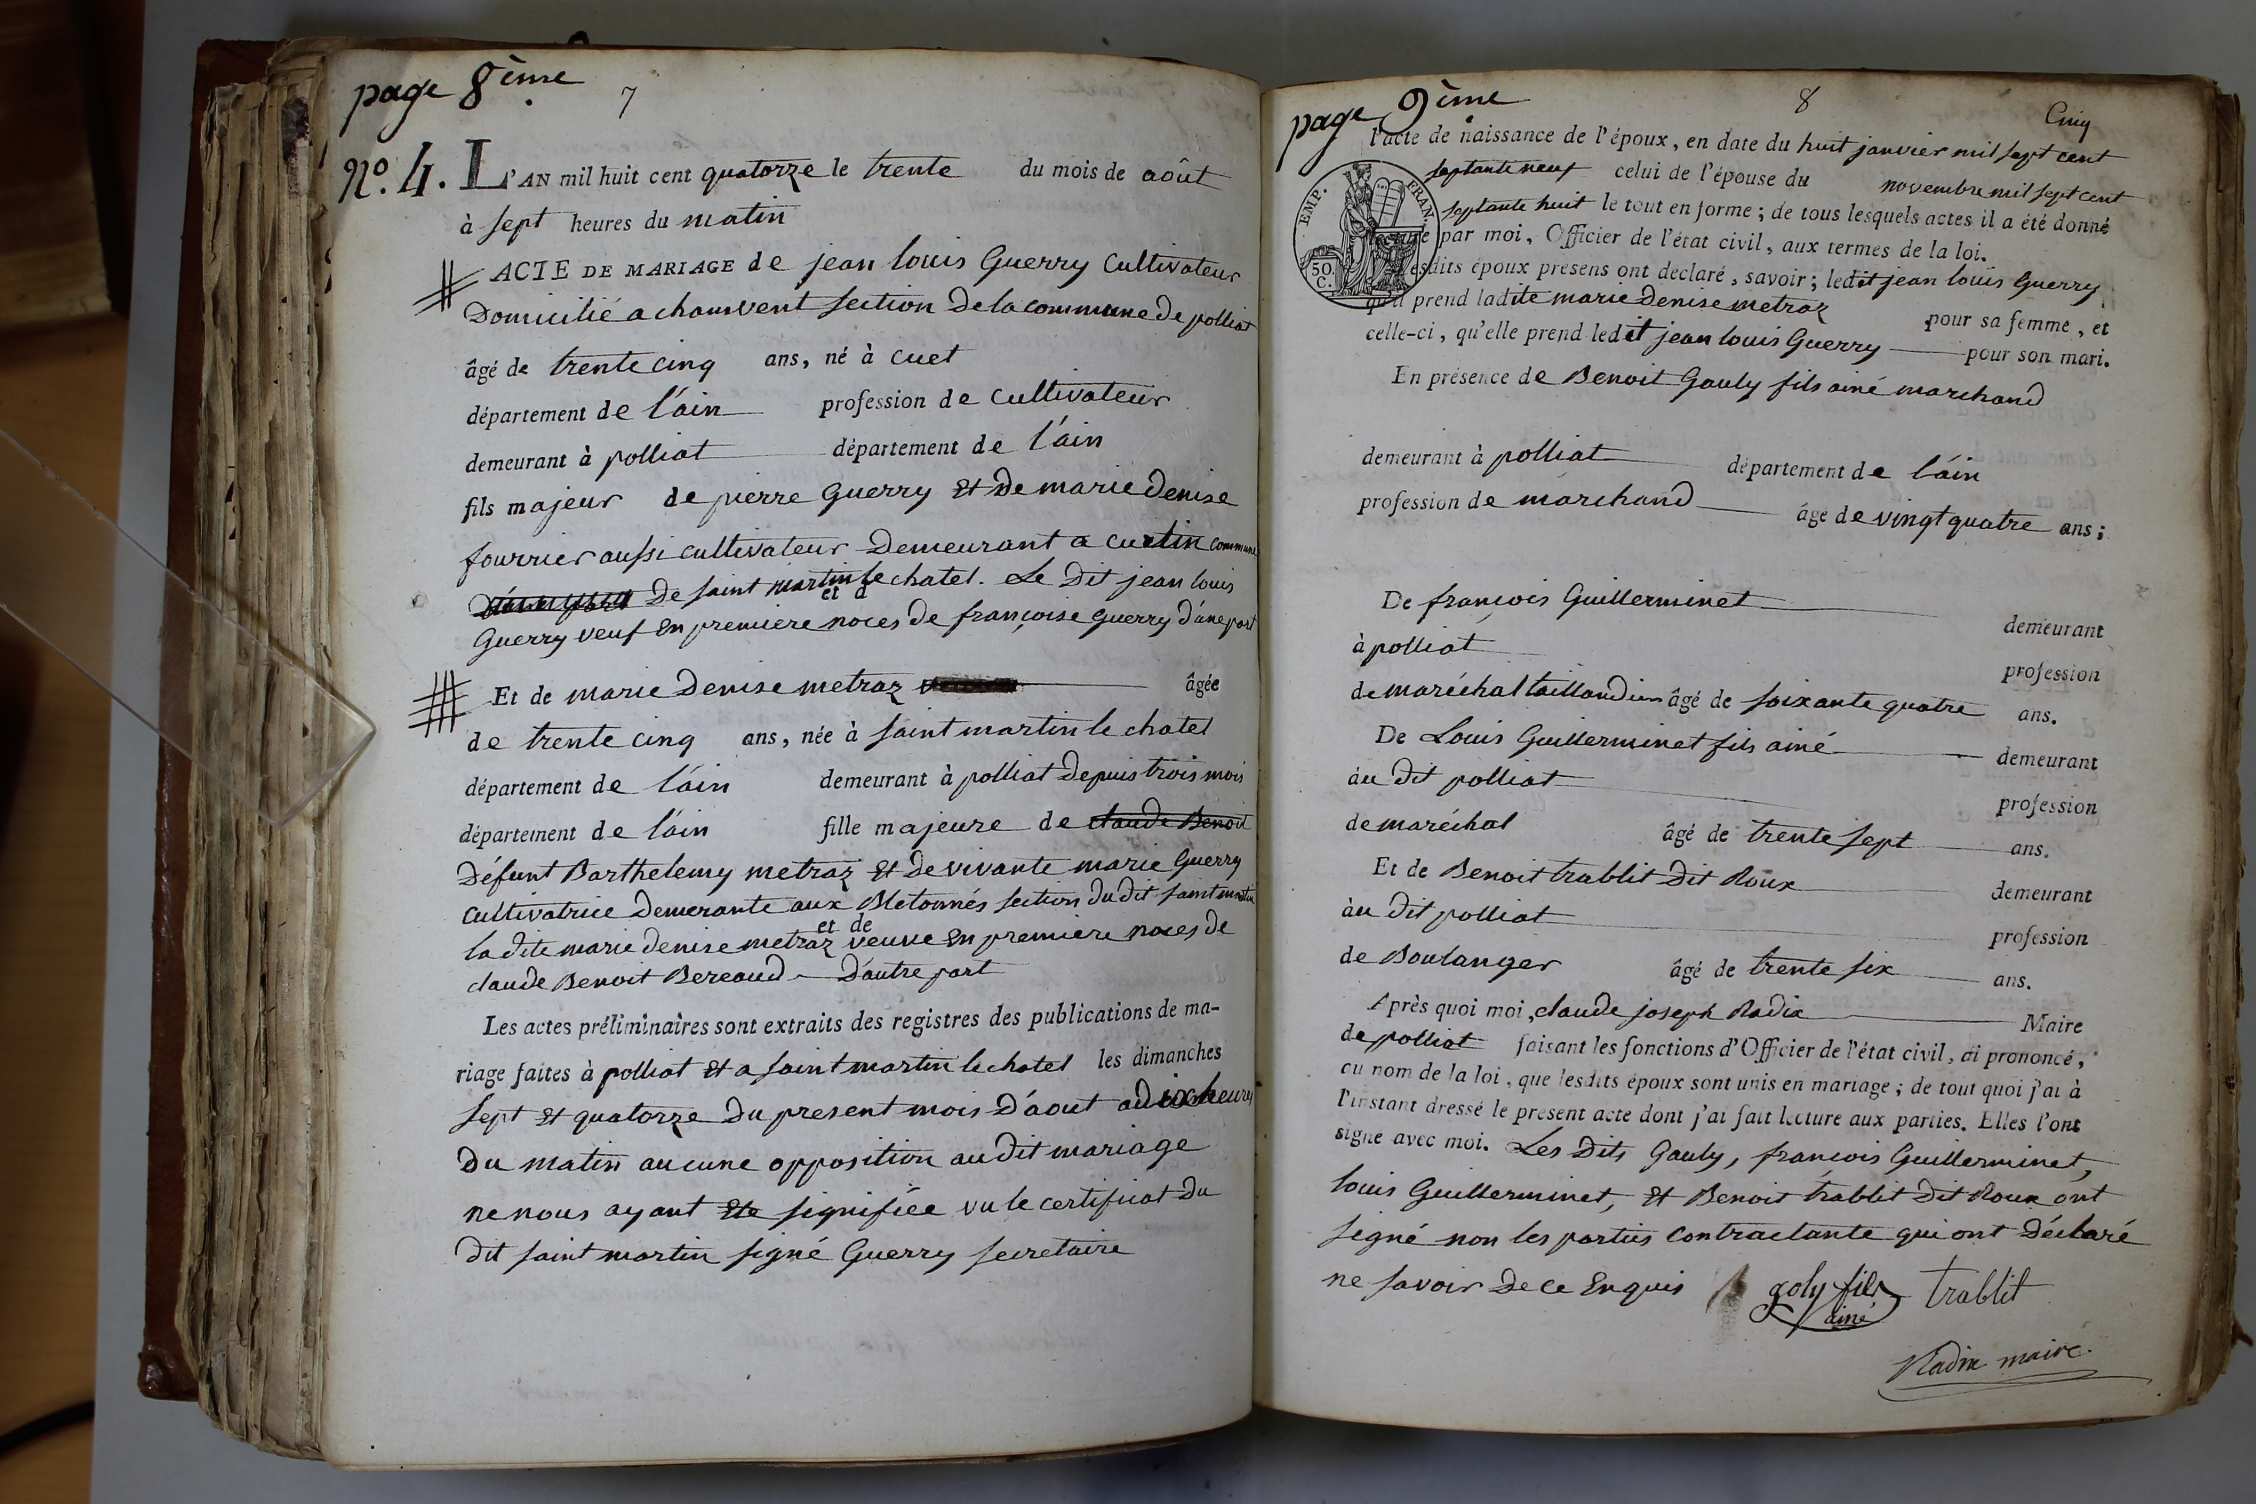 page 8ème
7
N.º 4. L'AN mil huit cent quatorze le trente du mois de août
à sept heures du matin
ACTE DE MARIAGE de jean louis Guerry Cultivateur
Domicilié a chamvent section de la commune de polliat
âgé de trente cinq ans, né à cuet
département de l'ain profession de Cultivateur
demeurant à polliat département de l'ain
fils majeur de pierre Guerry Et De marie Denise
fourrier aussi cultivateur Demeurant a cuetin commune
De saint martin le chatel. Le Dit jean louis
et d
Guerry veuf En premiere noces de françoise Guerry d'une part
Et de marie Denise metraz âgée
de trente cinq ans, née à saint martin le chatel
département de l'ain demeurant à polliat Depuis trois mois
département de l'ain fille majeure de claude Benoit
Défunt Barthelemy metraz Et de vivante marie Guerry
Cultivatrice Demerante aux Bletonnés section du dit saint martin
et de
la dite marie denise metraz veuve En premiere noces de
claude Benoit Bereaud D'autre part
Les actes préliminaires sont extraits des registres des publications de ma-
riage faites à polliat Et a saint martin le chatel les dimanches
sept Et quatorze Du present mois D'aout a dix heures
Du matin aucune opposition au dit mariage
ne nous ayant Ete signifiée vu le certificat Du
Dit saint martin signé Guerry secretaire
page 9ème
8
Cinq
l'acte de naissance de l'époux, en date du huit janvier mil sept cent
septante neuf celui de l'épouse du novembre mil sept cent
septante huit le tout en forme ; de tous lesquels actes il a été donné
lecture par moi, Officier de l'état civil, aux termes de la loi.
EMP. FRAN.
50.
C.
Lesdits époux présens ont déclaré, savoir ; ledit jean louis Guerry
qu'il prend ladite marie Denise metraz pour sa femme, et
celle-ci, qu'elle prend ledit jean louis Guerry pour son mari.
En présence de Benoit Gauly fils ainé marchand
demeurant à polliat département de l'ain
profession de marchand âgé de vingt quatre ans ;
De françois Guillerminet demeurant
à polliat profession
de maréchal taillandier âgé de soixante quatre ans.
De Louis Guillerminet fils ainé demeurant
au dit polliat profession
de maréchal âgé de trente sept ans.
Et de Benoit trablit Dit Roux demeurant
àu dit polliat profession
de Boulanger âgé de trente six ans.
Après quoi moi, claude joseph Radix Maire
de polliat faisant les fonctions d'Officier de l'état civil, ai prononcé,
au nom de la loi, que lesdits époux sont unis en mariage ; de tout quoi j'ai à
l'instant dressé le présent acte dont j'ai fait lecture aux parties. Elles l'ont
signé avec moi. Les Dits Gauly, françois Guillerminet,
louis Guillerminet, Et Benoit trablit Dit Roux ont
signé non les parties Contractante qui ont Déclaré
ne savoir De ce Enquis goly fils trablit
ainé
Radix maire.